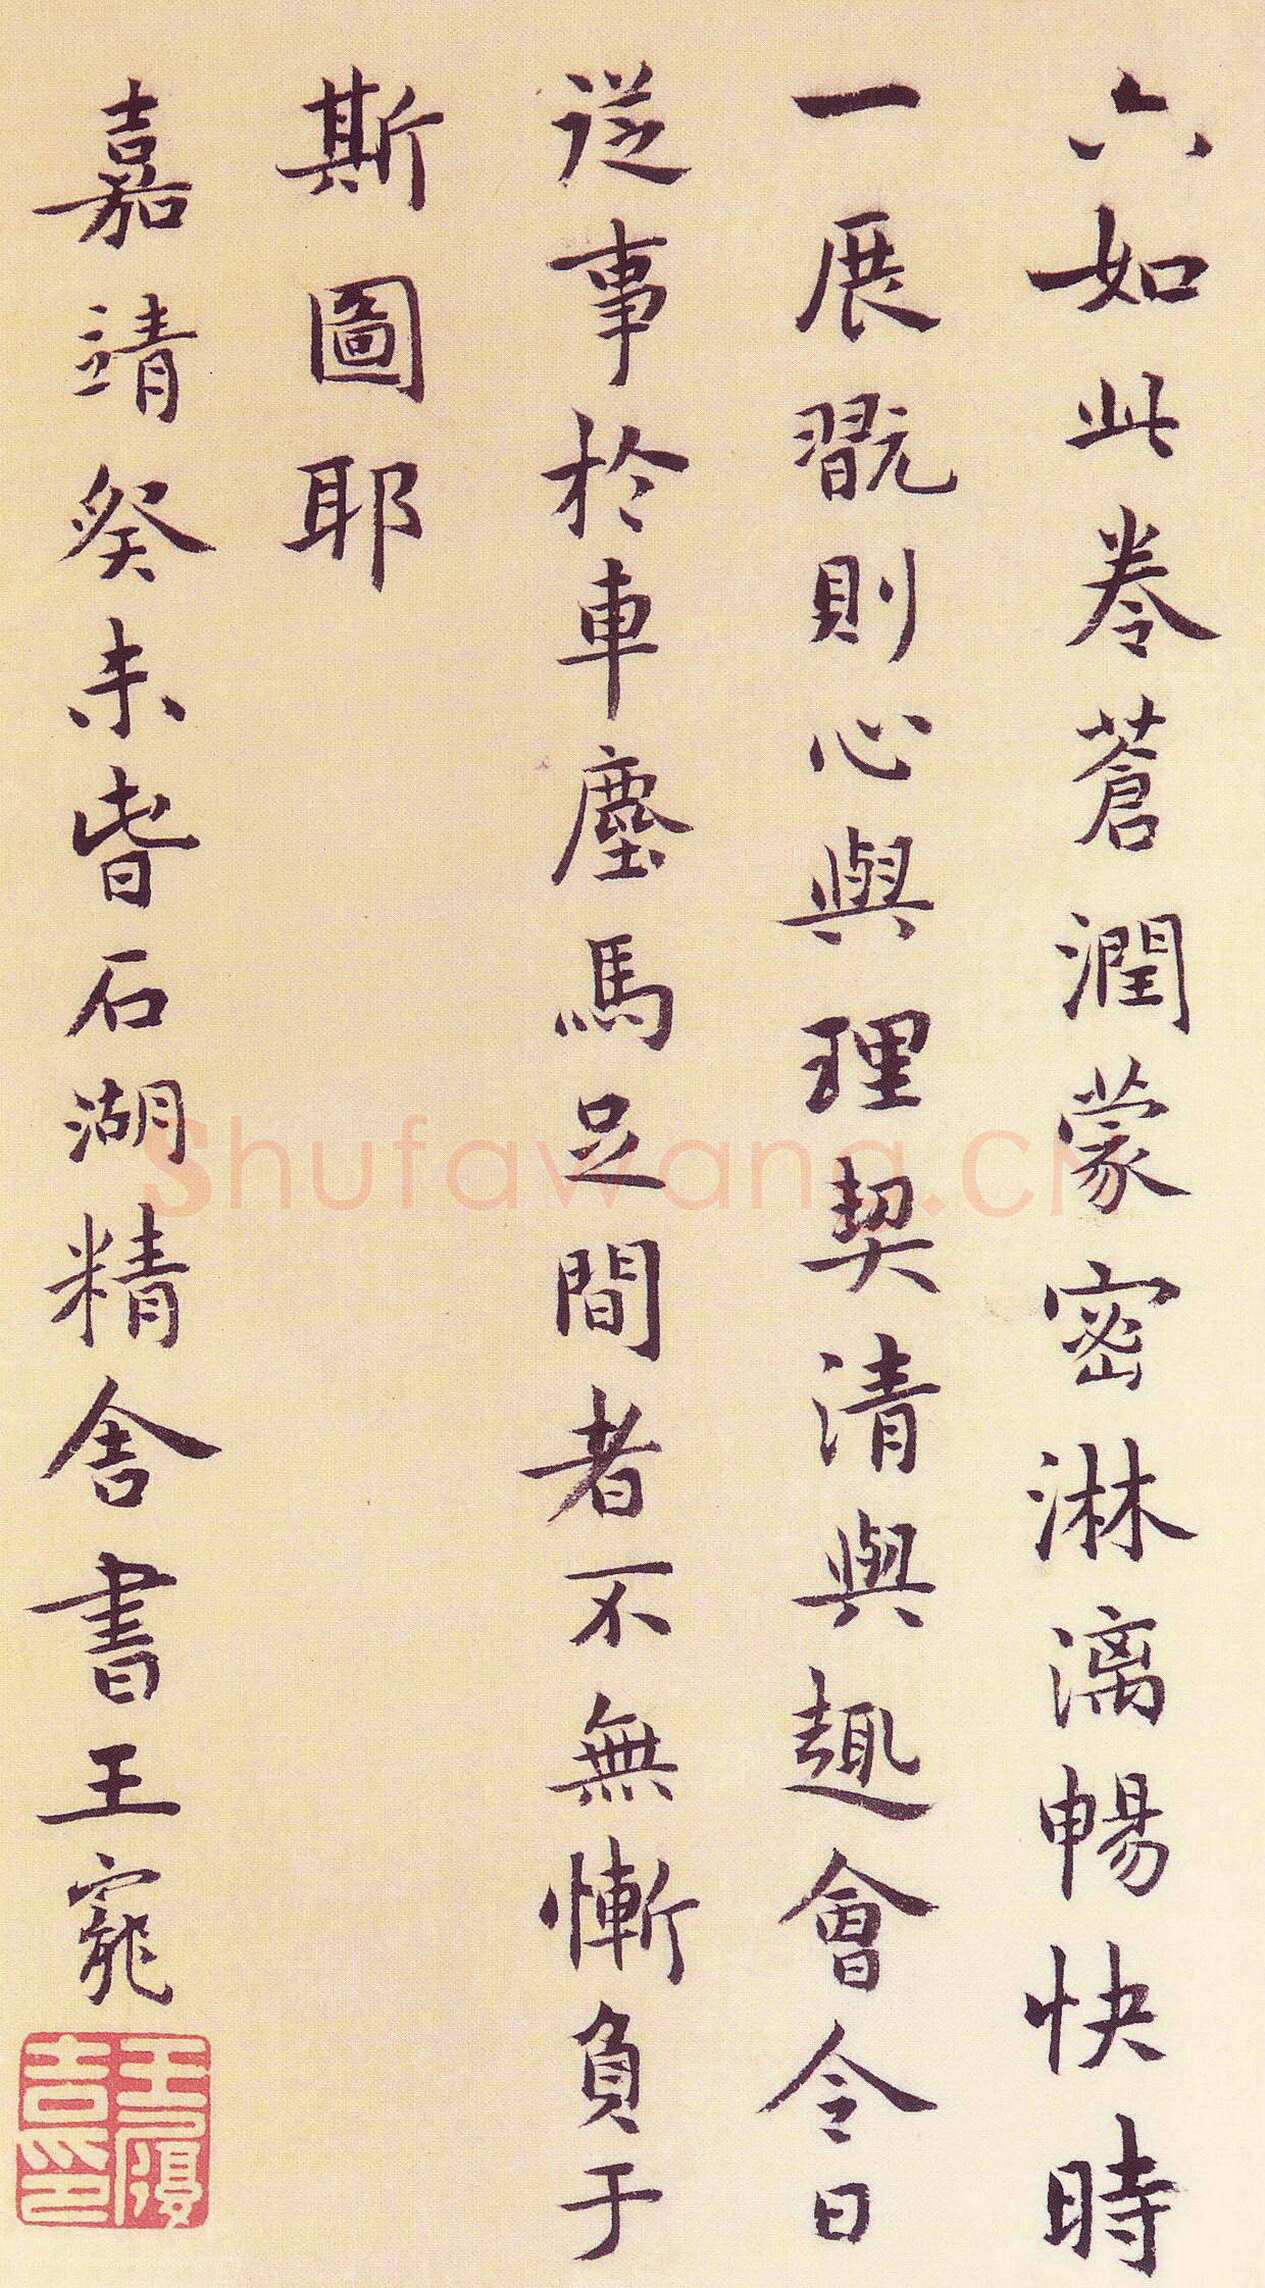 六如此卷蒼潤蒙密淋漓暢快時
一展翫則心與理契清與趣會今日
從事於車塵馬足間者不無慚負于
斯圖耶
嘉靖癸未旹石湖精舍書王寵
王履吉印
Shufawang.CN